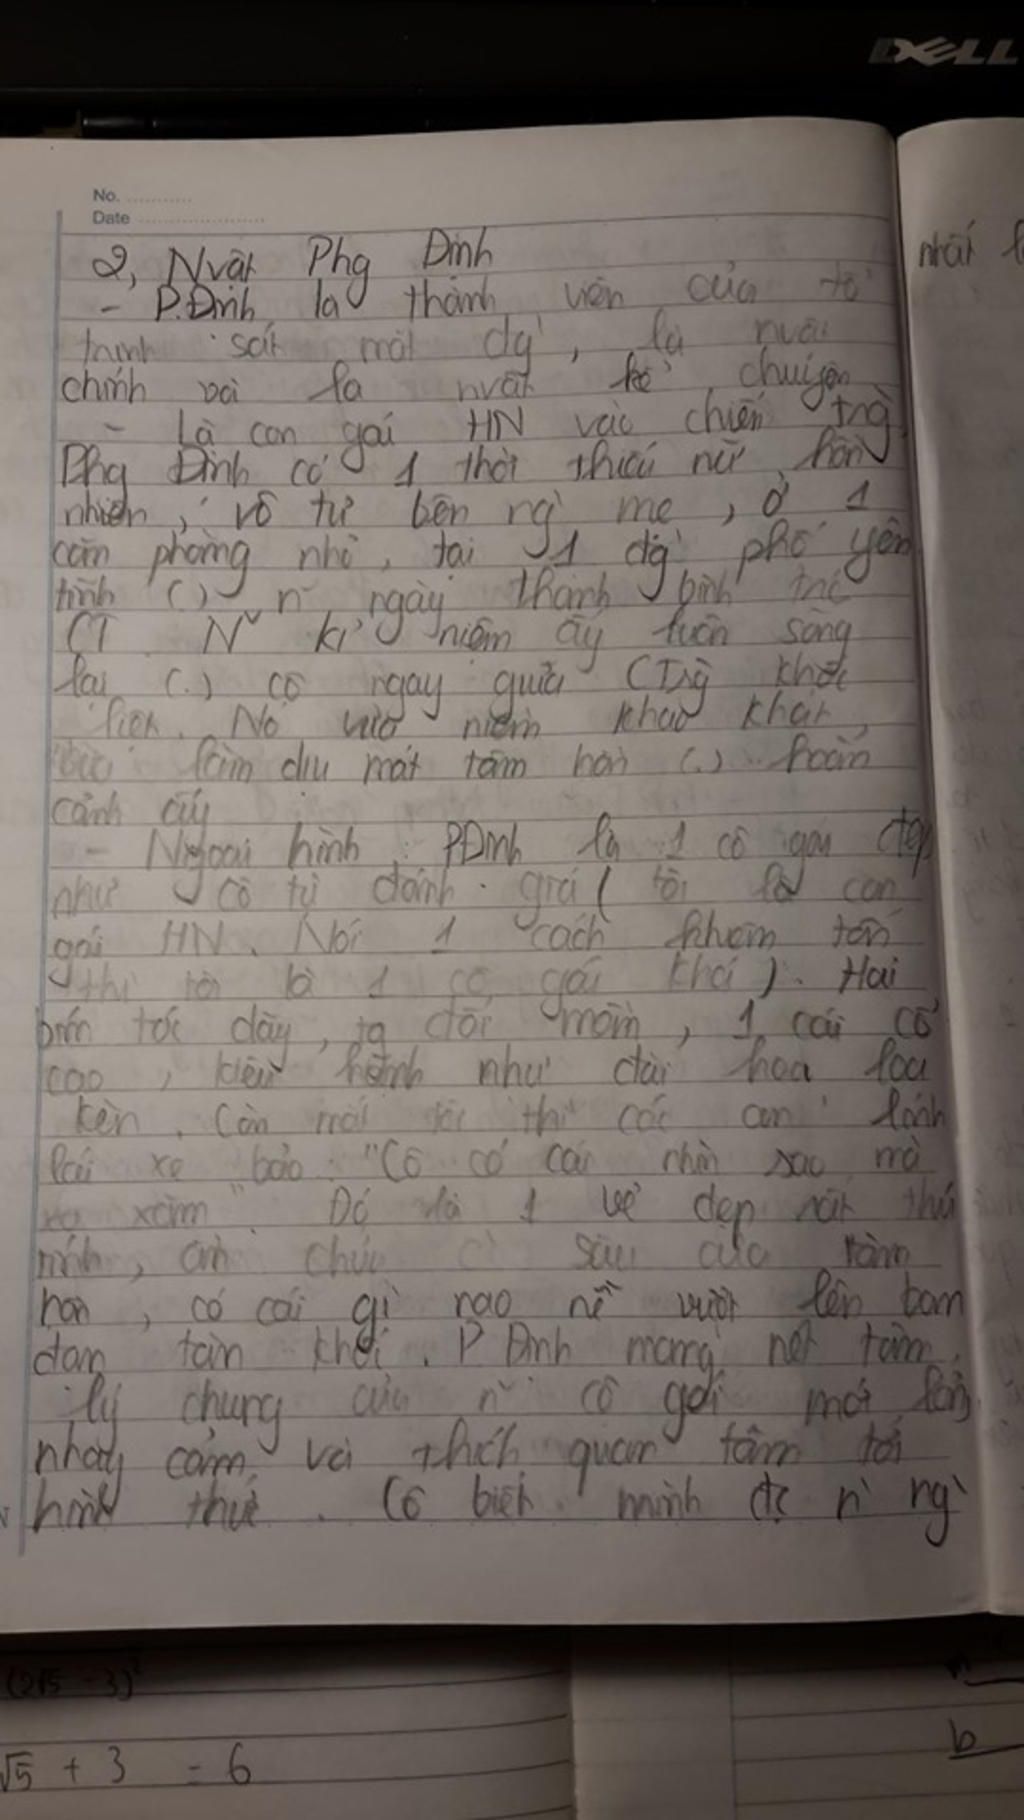 DELL
No.
Date
2, Nvật Phg Định
- P.Định là thành viên của tổ
trinh sát mặt đg, là nvật
chính và là nvật kể chuyện
- Là con gái HN vào chiến trg
Phg Định có 1 thời thiếu nữ hồn
nhiên, vô tư bên ng mẹ, ở 1
căn phòng nhỏ, tại 1 đg phố yên
tĩnh (.) n ngày thanh bình trc
CT. N kỉ niệm ấy luôn sống
lại (.) cô ngay giữa CTrg khốc
liệt. Nó vừa niềm khao khát,
vừa làm dịu mát tâm hồn (.) hoàn
cảnh ấy
- Ngoại hình: P.Định là 1 cô gái đẹp
như cô tự đánh giá ( tôi là con
gái HN. Nói 1 cách khiêm tốn
thì tôi là 1 cô gái khá ). Hai
bím tóc dày, tg đối mềm, 1 cái cổ
cao, kiêu hãnh như đài hoa loa
kèn. Còn mắt tôi thì các anh lính
lái xe bảo: "Cô có cái nhìn sao mà
xa xăm". Đó là 1 vẻ đẹp rất thú
sâu của tâm
hồn, có cái gì nao nề vượt lên bom
đạn tàn khốc. P Định mang nét tâm
lý chung của n cô gái mới lớn
nhạy cảm và thích quan tâm tới
hình thức. Cô biết mình đc n ng
nhất
(2√5 - 3)²
√5 + 3 = 6
b